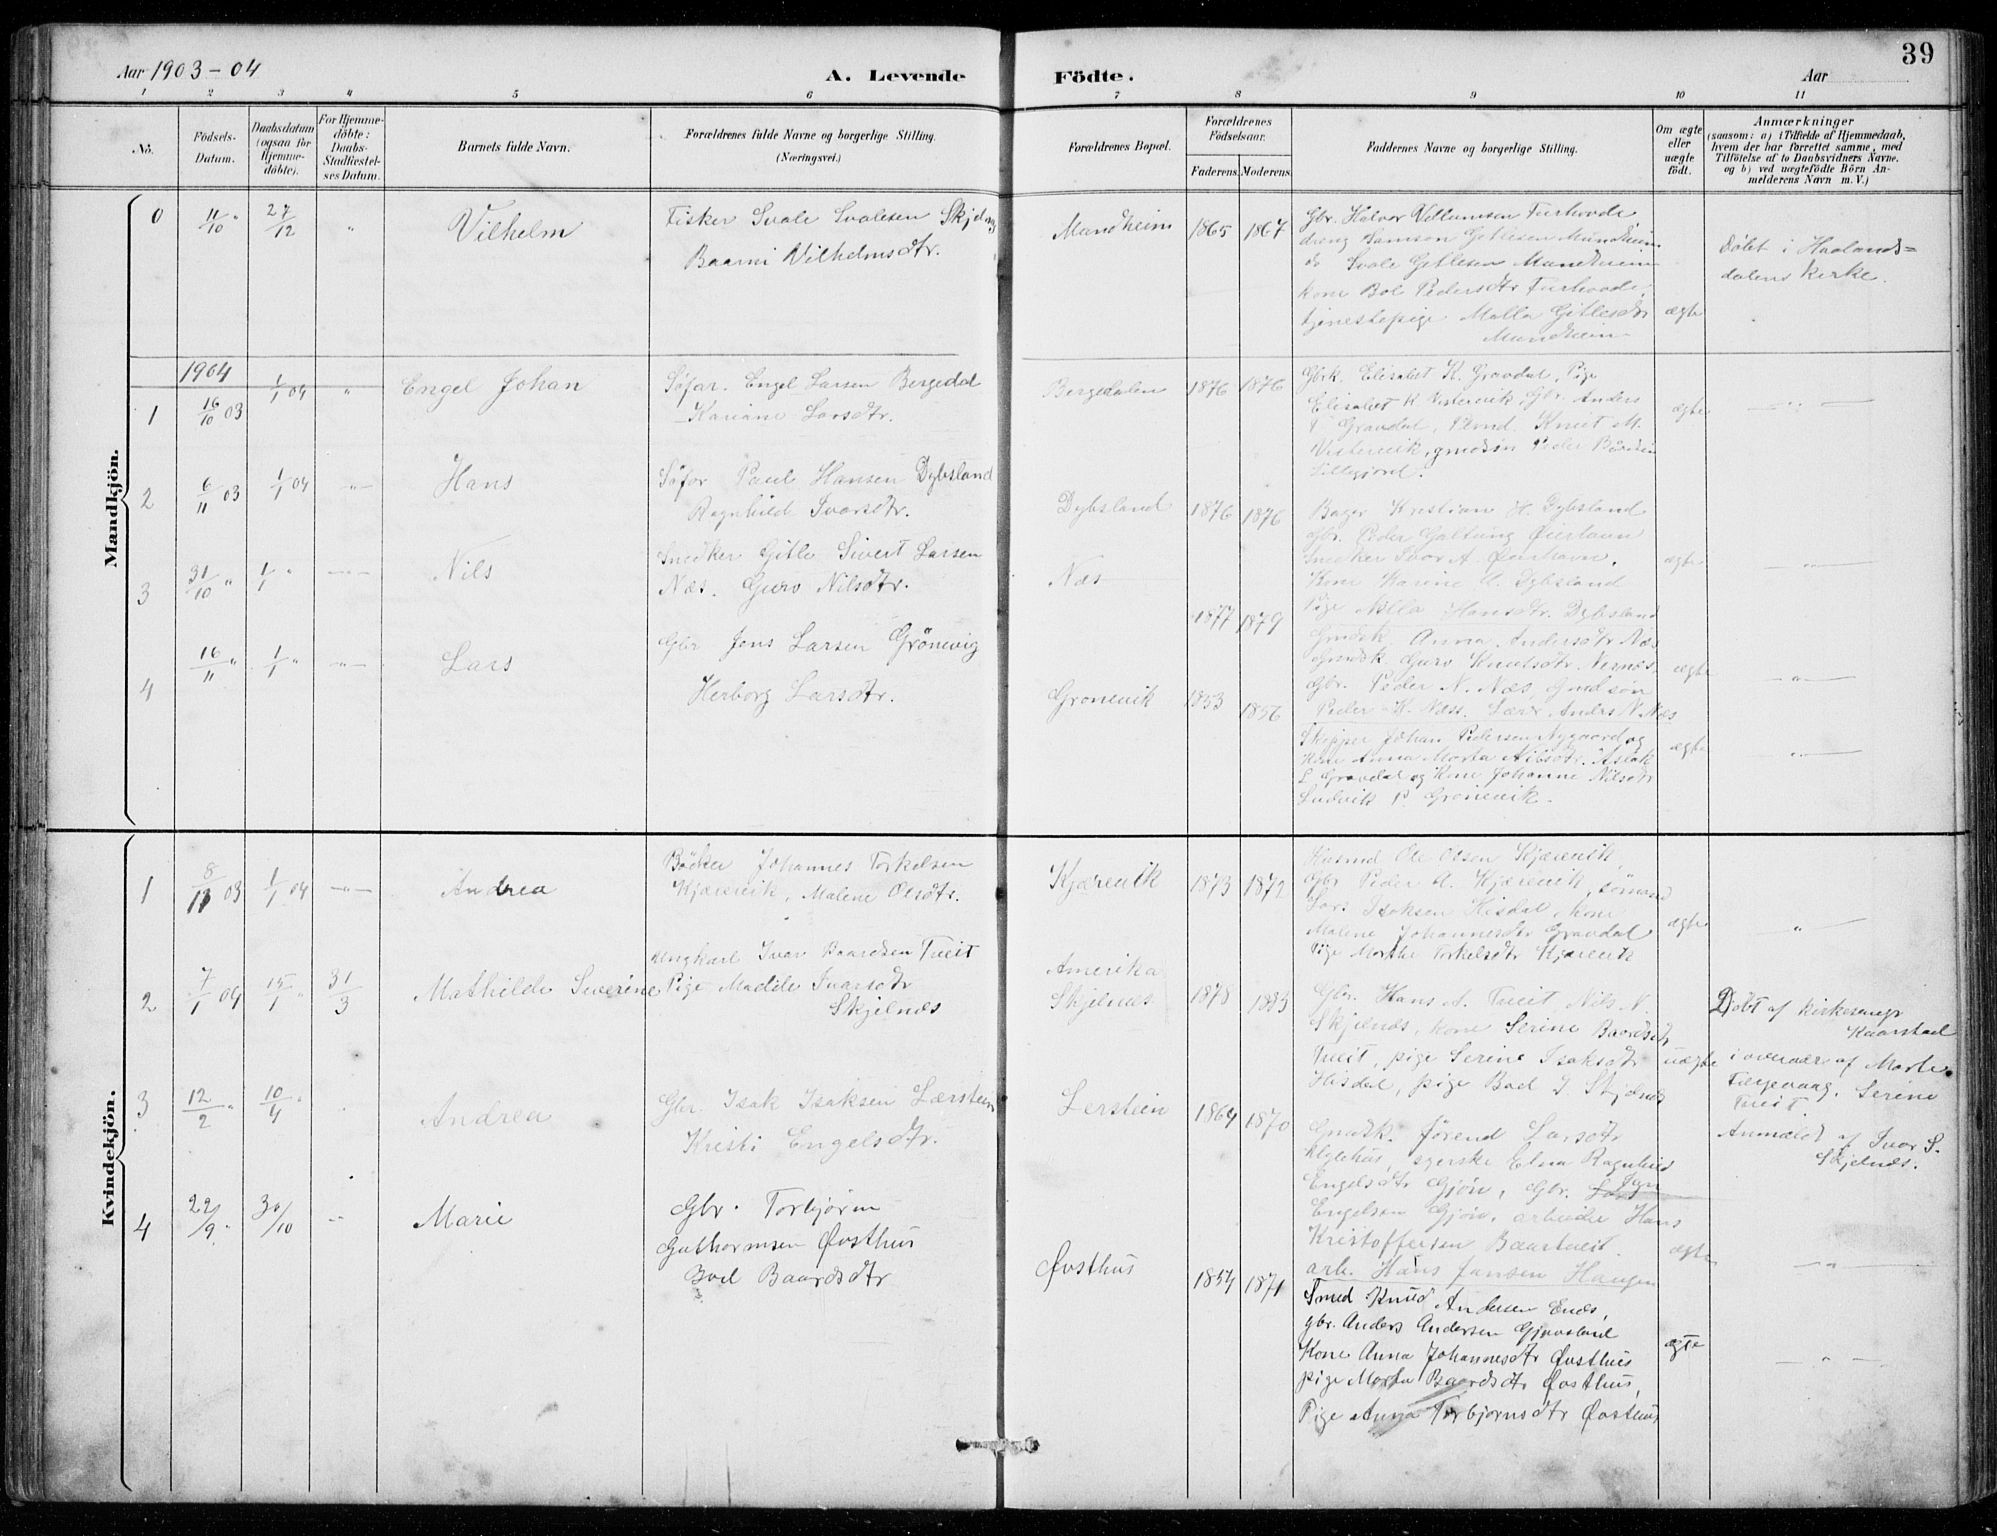 39
Aar 1903-04
A. Levende Födte.
Aar
1 2 3 4 5 6 7 8 9 10 11
No.
Födsels-Datum.
Daabsdatum (ogsaa for Hjemme-döbte).
For Hjemme-döbte: Daabs-Stadfæstel-ses Datum.
Barnets fulde Navn.
Forældrenes fulde Navne og borgerlige Stilling.
(Næringsvei.)
Forældrenes Bopæl.
Forældrenes Födselsaar.
Faderens. Moderens.
Faddernes Navne og borgerlige Stilling.
Om ægte eller uægte födt.
Anmærkninger
(saasom: a) i Tilfælde af Hjemmedaab,
hvem der har forrettet samme, med
Tilföielse af to Daabsvidners Navne.
og b) ved uægtefödte Börn An-
melderens Navn m. V.)
Mandkjön.
0 11/10 " 27/12 " Vilhelm
Fisker Svale Svalesen
Baarni Vilhelmsdtr.
Mundheim 1865 1867
dreng Samson Gitlesen Mundheim
do Svale Gitlesen Mundheim
Kone Bol Pedersdtr
tjenestepige Malla Gitlesdtr
Mundheim
ægte
Döbt i Haalands=
dalens Kirke.
1904
1 16/10 03 1/1 04 " Engel Johan
Söfar. Engel Larsen Bergedal
Kariane Larsdtr.
Bergedalen 1876 1876
Gbrk. Elisabet K. Gravdal, Pige
Elisabet K. Gbr. Anders
Gravdal, Knut M.
Peder
ægte
2 6/11 03 1/1 04 -"- Hans
Söfar Paul Hansen Dybsland
Ragnhild Ivarsdtr.
Dybsland 1876 1876
Bager Kristian H. Dybsland
Gbr. Peder Galtung
Snedker Ivar A.
Kone Karine H. Dybsland
Pige Milla Hansdtr. Dybsland
ægte
3 31/10 " 1/1 " -"- Nils
Snedker Gitle Sivert Larsen
Næs. Guro Nilsdtr.
Næs 1877 1879
Gmdk. Anna Andersdtr Næs
Gmdk. Guro Knutsdtr.
Gbr. Peder N. Næs, Gmdsön
Peder K. Næss. Lærer Anders N. Næs
ægte
4 16/11 " 1/1 " -"- Lars
Gbr Jens Larsen Grönevig
Herborg Larsdtr.
Gronevik 1853 1856
Skipper Johan Pedersen Nygaard og
Kone Anna Marta Nilsdtr. Aslak
L Gravdal og Kone Johanne Nilsdtr
Ludvik P. Gronevik.
ægte
Kvindekjön.
1 8/11 03 1/1 04 -"- Andrea
Bödker Johannes Torkelsen
Kjærevik, Malene Olsdtr.
Kjærevik 1873 1872
Husmd Ole Olsen Kjærevik,
Gbr Peder A. Kjærevik, sömand
Lars Isaksen Hisdal, Kone
Malene Johannesdtr Gravdal
Pige Marthe Torkelsdtr Kjærevik
ægte
2 7/1 04 15/1 " 31/3 Mathilde Severine
Ungkarl Ivar Baardsen Tveit
Pige Madile Ivarsdtr
Skjelnæs
Amerika
Skjelnæs 1878 1883
Gbr. Hans A. Tveit, Nils N.
Skjelnæs, kone Serine Baardsdtr
Tveit, pige Serine Isaksdtr
Hisdal, pige Bool I Skjelnæs
uægte
Döbt af kirkesanger
Kaarstad
i overvær af Marte
Færevaag, Serine
Tveit.
Anmeldt af Ivar S.
Skjelnæs.
3 12/2 " 10/4 " Andrea
Gbr. Isak Isaksen Lærsteen
Kristi Engelsdtr.
Lerstein 1864 1870
Gmdk. Jörend Larsdtr
syerske Elna Ragnhild
Engelsdtr Gjön, Gbr.
Engelsen Gjön, arbeider Hans
Kristoffersen
arb. Hans Jansen Haugen
ægte
4 22/9 " 30/10 Marie
Gbr. Torbjörn
Guthormsen Østhus
Boel Baardsdtr
Østhus 1854 1871
Smed Knud Andersen Enes,
gbr. Anders Andersen
Kone Anna Johannesdtr Østhus
pige Marta Baardsdtr Østhus,
Pige Anna Torbjörnsdtr Østhus
ægte